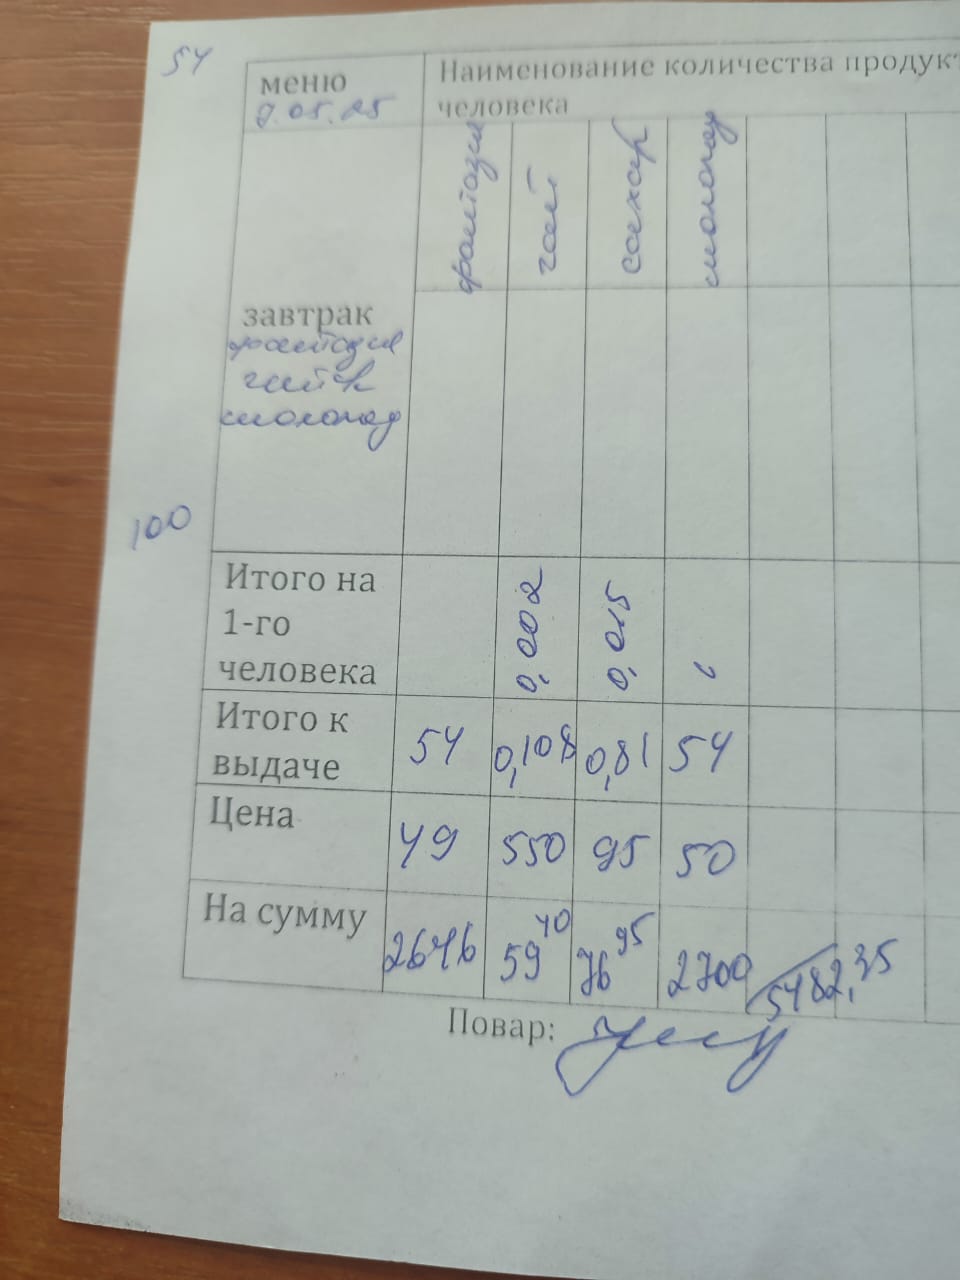 54
меню
Наименование количества продукт
7.05.25
человека
фантазия
чай
сахар
шоколад
завтрак
фантазия
чай
шоколад
100
Итого на
1-го
человека
0,002
0,015
Итого к
выдаче
54
0,108
0,81
54
Цена
49
550
95
50
На сумму
2646
59 40
76 95
2700
5482,35
Повар: